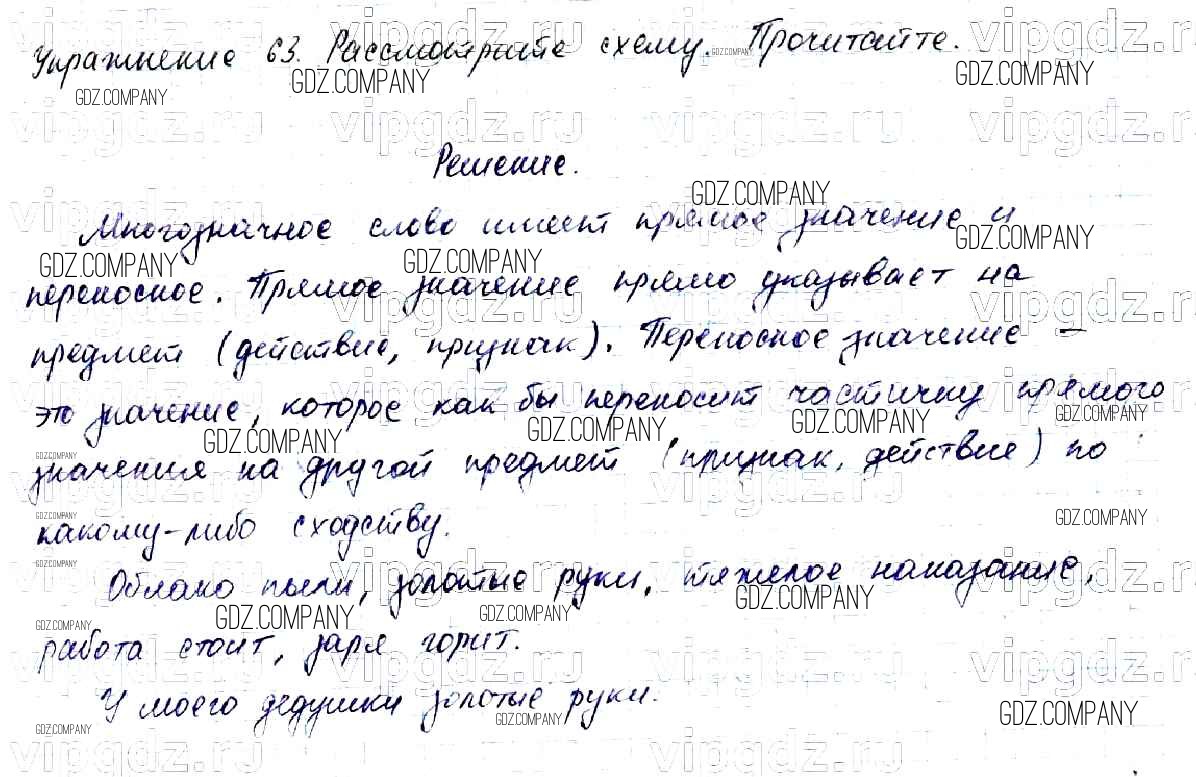 Упражнение 63. Рассмотрите схему. Прочитайте.
Решение.
Многозначное слово имеет прямое значение и
переносное. Прямое значение прямо указывает на
предмет (действие, признак). Переносное значение –
это значение, которое как бы переносит частичку прямого
значения на другой предмет (признак, действие) по
какому-либо сходству.
Облако пыли, золотые руки, тяжелое наказание,
работа стоит, заря горит.
У моего дедушки золотые руки.